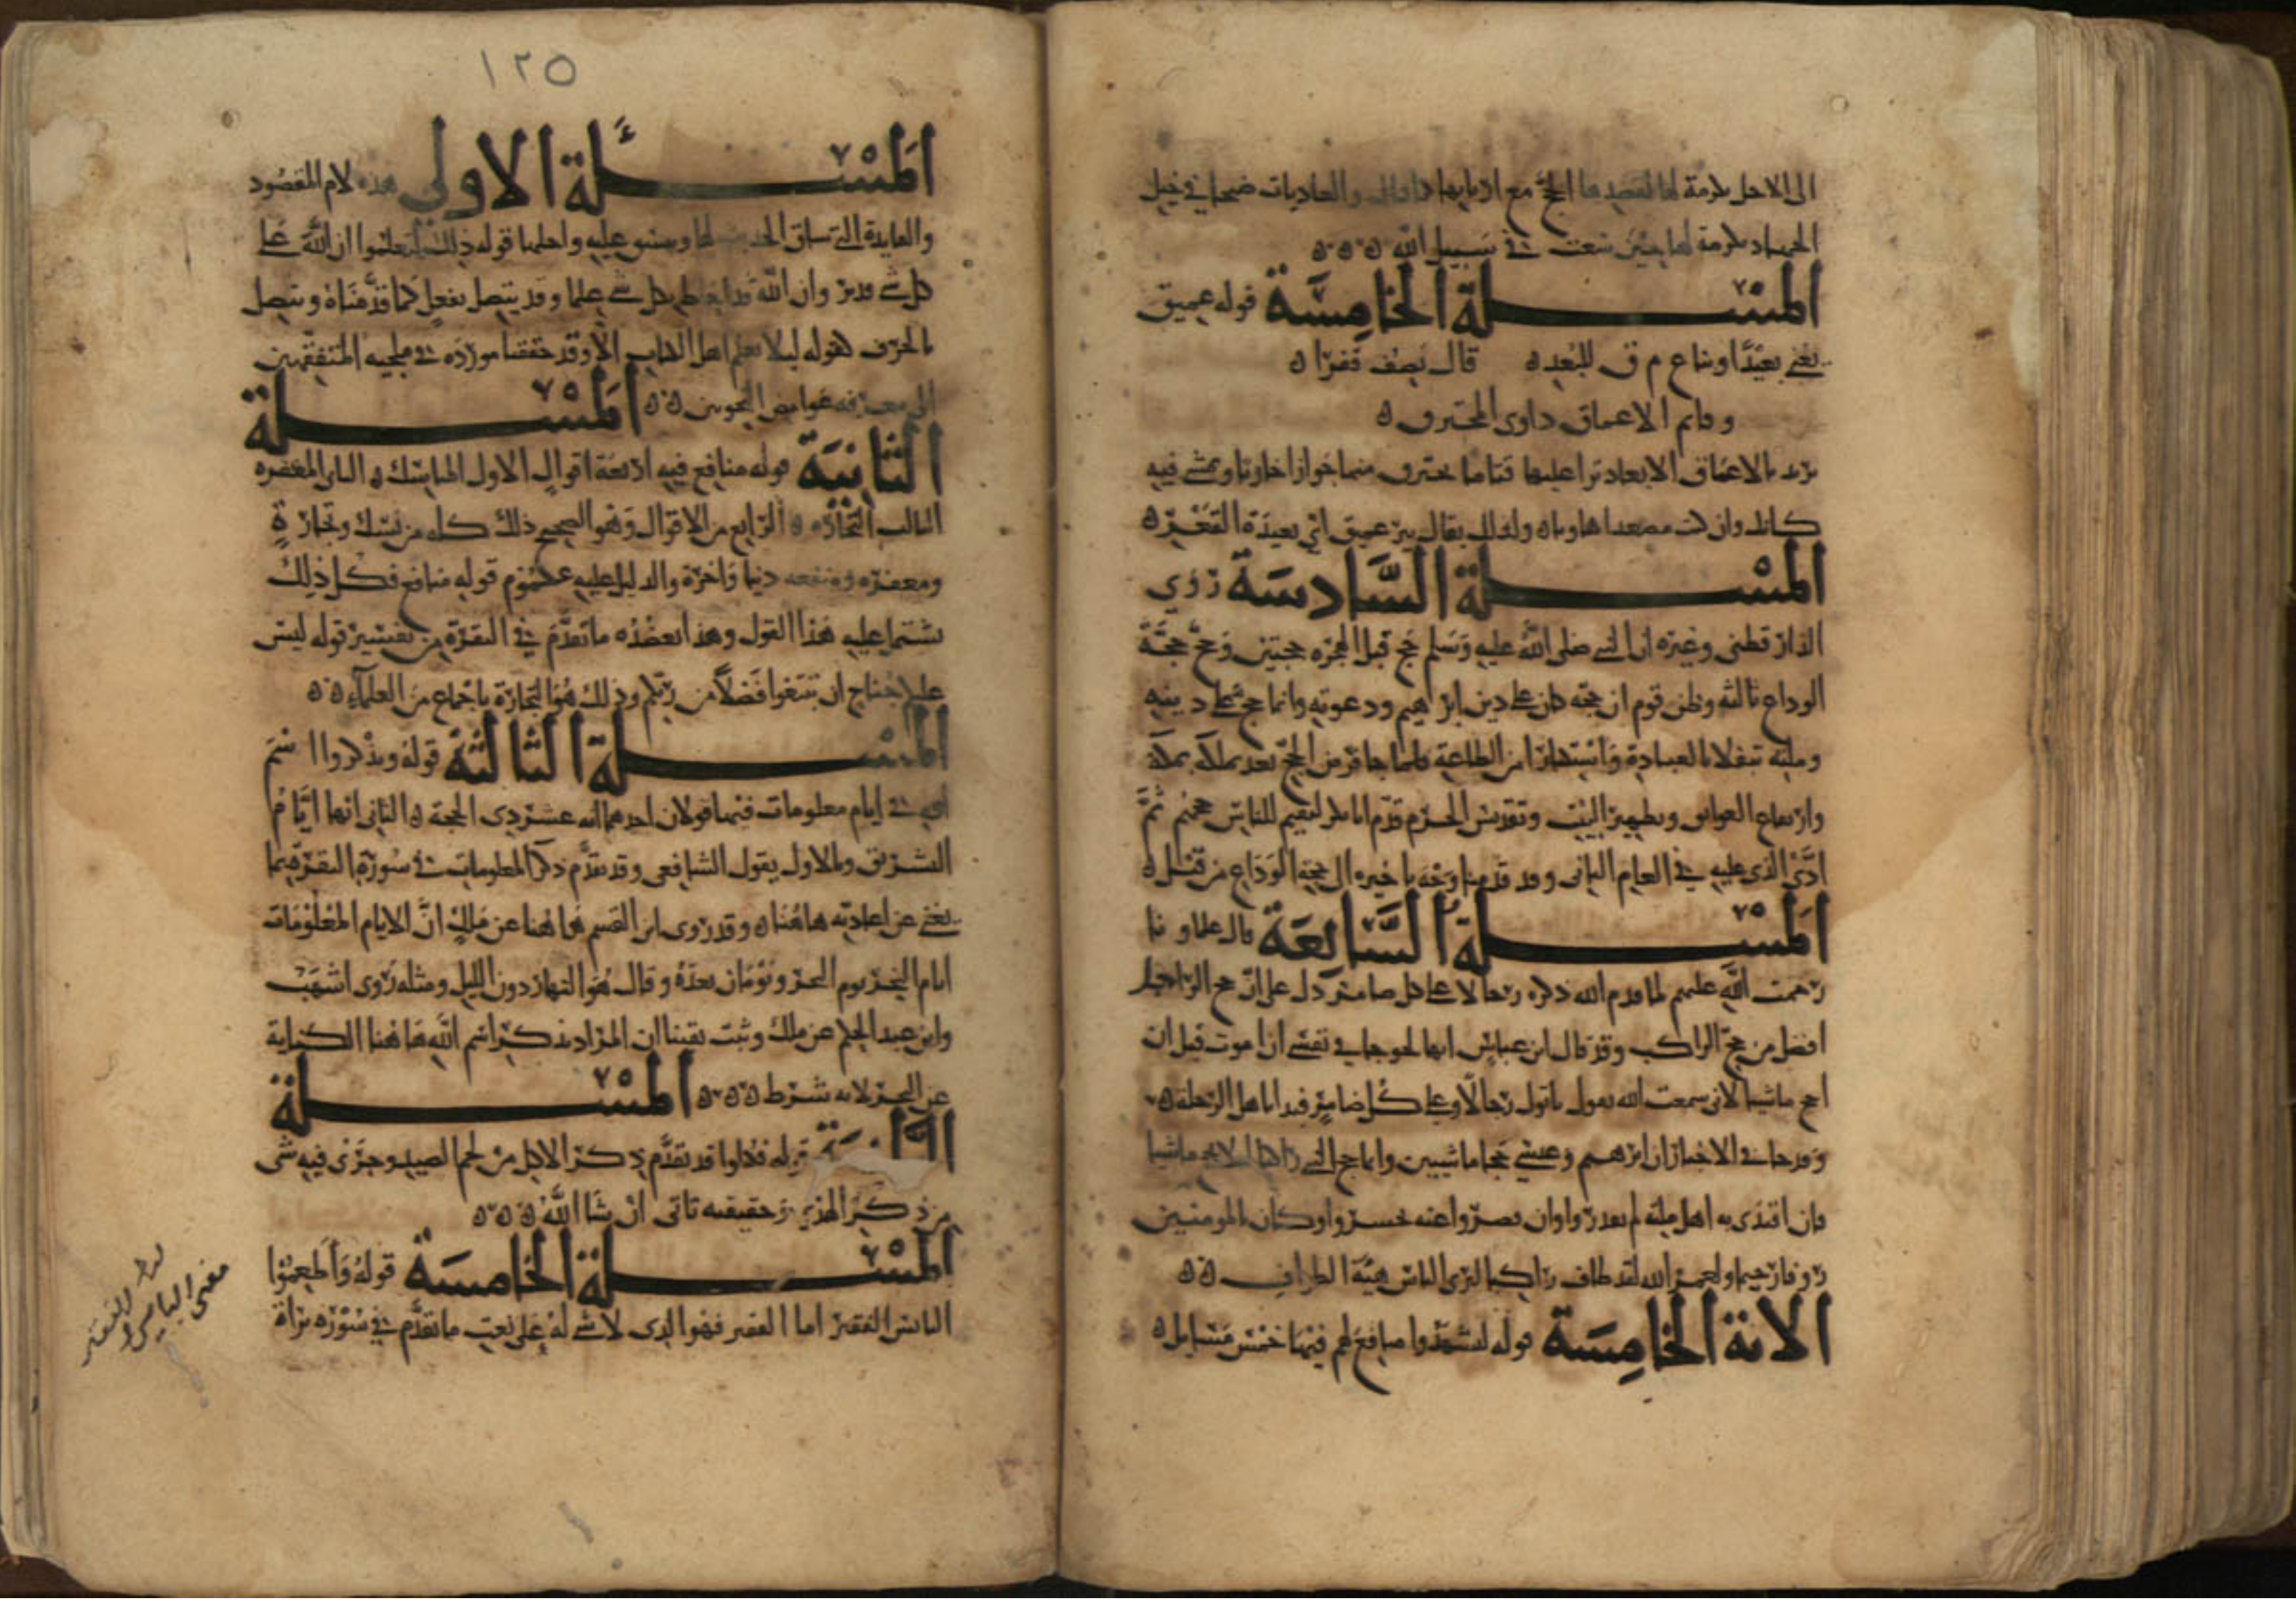 الى الابل تكرمة لها لقصدها الحج مع اربابها كما قال والعاديات ضبحا في خيل
الجهاد تكرمة لها حين سعت في سبيل الله
المسلة الخامسة قوله عميق
يعني بعيدا وبناع م ق للبعد قال يصف قفرا
وقاتم الاعماق خاوى المخترق
يريد بالاعماق الابعاد ترا عليها قتاما يخترق منها جوا خاويا وتمشي فيه
كانك وان كنت مصعدا هاو ولذلك يقال بير عميق اي بعيدة القعر
المسلة السادسة روي
الدارقطني وغيره ان النبي صلى الله عليه وسلم حج قبل الهجرة حجتين وحج حجة
الوداع ثالثة وظن قوم ان حجه كان على دين ابرهيم ودعوته وانما حج على دينه
وملته تنفلا بالعبادة واستكثارا من الطاعة فلما جا فرض الحج بعد تملكه بمكة
وارتفاع العوائق وتطهير البيت وتقديس الحرم قدم ابا بكر ليقيم للناس حجهم ثم
ادى الذي عليه في العام الثاني وقد قدمنا وجه تاخيره الى حجة الوداع من قبل
المسلة السابعة قال علماونا
رحمت الله عليهم لما قدم الله ذكره رجالا على كل ضامر دل على ان حج الراجل
افضل من حج الراكب وقد قال ابن عباس انها لحوجا في نفسي ان اموت قبل ان
احج ماشيا لاني سمعت الله يقول ياتوك رجالا وعلى كل ضامر فبدا باهل الرحلة
وقد جا في الاخبار ان ابرهيم وعيسى حجا ماشيين وانما حج النبي راكبا لانه ماشيا
فان اقتدى به اهل ملته لم يقدروا وان قصروا عنه تحسروا وكان بالمومنين
روفا رحيما ولعمر الله لقد طاف راكبا ليرى الناس هيئة الطواف
الاية الخامسة قوله ليشهدوا منافع لهم فيها خمس مسايل
١٢٥
المسئلة الاولى هذه لام المقصود
والفايدة التي ينساق الحديث لها وينسق عليه واجلها قوله ذلك لتعلموا ان الله على
كل شي قدير وان الله قد احاط بكل شي علما وقد يتصل بفعل كما قدمناه ويتصل
بالحرف كقوله ليلا يعلم اهل الكتاب الا وقد حققنا مورده في ملجيه المتفقهين
الى معرفة غوامض النحويين المسلة
الثانية قوله منافع فيه اربعة اقوال الاول المناسك الثاني المغفرة
الثالث التجارة الرابع من الاقوال وهو الصحيح ذلك كله من نسك وتجارة
ومغفرة ومنفعة دنيا واخرة والدليل عليه عموم قوله منافع فكل ذلك
يشتمل عليه هذا القول وهذا يعضده ما تقدم في البقرة من تفسير قوله ليس
عليكم جناح ان تبتغوا فضلا من ربكم وذلك هو التجارة باجماع من العلماء
المسلة الثالثة قوله ويذكروا اسم
الله في ايام معلومات فيها قولان احدهما انه عشر ذي الحجة الثاني انها ايام
التشريق وبالاول يقول الشافعي وقد تقدم ذكر المعلومات في سورة البقرة بما
يغني عن اعادته هاهنا وقد روى ابن القسم هاهنا عن ملك ان الايام المعلومات
ايام النحر يوم النحر ويومان بعده وقال هو النهار دون الليل ومثله روى اشهب
وابن عبد الحكم عن ملك وثبت يقينا ان المراد بذكر اسم الله هاهنا الكناية
عن النحر لانه شرط المسلة
الرابعة قوله فكلوا قد تقدم ذكر الاكل من لحم الصيد وجرى فيه شي
من ذكر الهدي وحقيقته تاتي ان شا الله
المسلة الخامسة قوله واطعموا
البائس الفقير اما الفقير فهو الذي لا شي له على نعت ما تقدم في سورة براة
معنى البايس والفقير